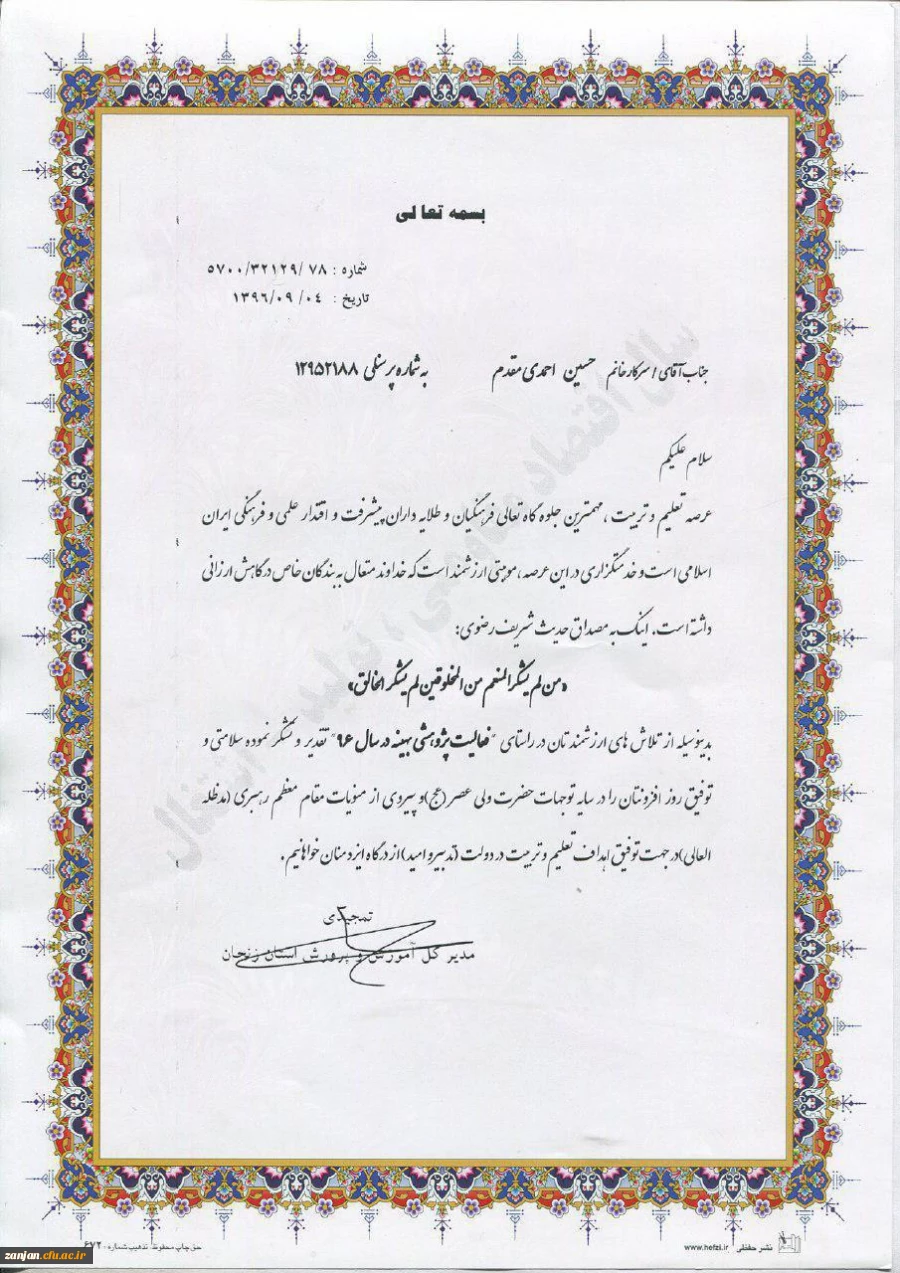 بسمه تعالی
شماره : ۷۸ /۵۷۰۰/۳۲۱۲۹
تاریخ : ۰۴ /۱۳۹۶/۰۹
جناب آقای / سرکار خانم حسین احمدی مقدم به شماره پرسنلی ۱۲۹۵۲۱۸۸
سلام علیکم
عرصه تعلیم و تربیت ، مهمترین جلوه گاه تعالی فرهنگیان و طلایه داران پیشرفت و اقتدار علمی و فرهنگی ایران
اسلامی است و خدمتگزاری در این عرصه ، موهبتی ارزشمند است که خداوند متعال به بندگان خاص درگاهش ارزانی
داشته است. اینک به مصداق حدیث شریف رضوی:
«من لم یشکر المنعم من المخلوقین لم یشکر الخالق»
بدینوسیله از تلاش های ارزشمندتان در راستای "فعالیت پژوهشی بهینه در سال ۹۶" تقدیر و تشکر نموده سلامتی و
توفیق روز افزونتان را در سایه توجهات حضرت ولی عصر (عج) و پیروی از منویات مقام معظم رهبری (مدظله
العالی) در جهت توفیق اهداف تعلیم و تربیت در دولت (تدبیر و امید) از درگاه ایزد منان خواهانیم.
تمجیدی
مدیر کل آموزش و پرورش استان زنجان
سال اقتصاد مقاومتی ، تولید ، اشتغال
نشر حفظی www.hefzi.ir
حق چاپ محفوظ، تذهیب شماره ۶۷۲۰
zanjan.cfu.ac.ir